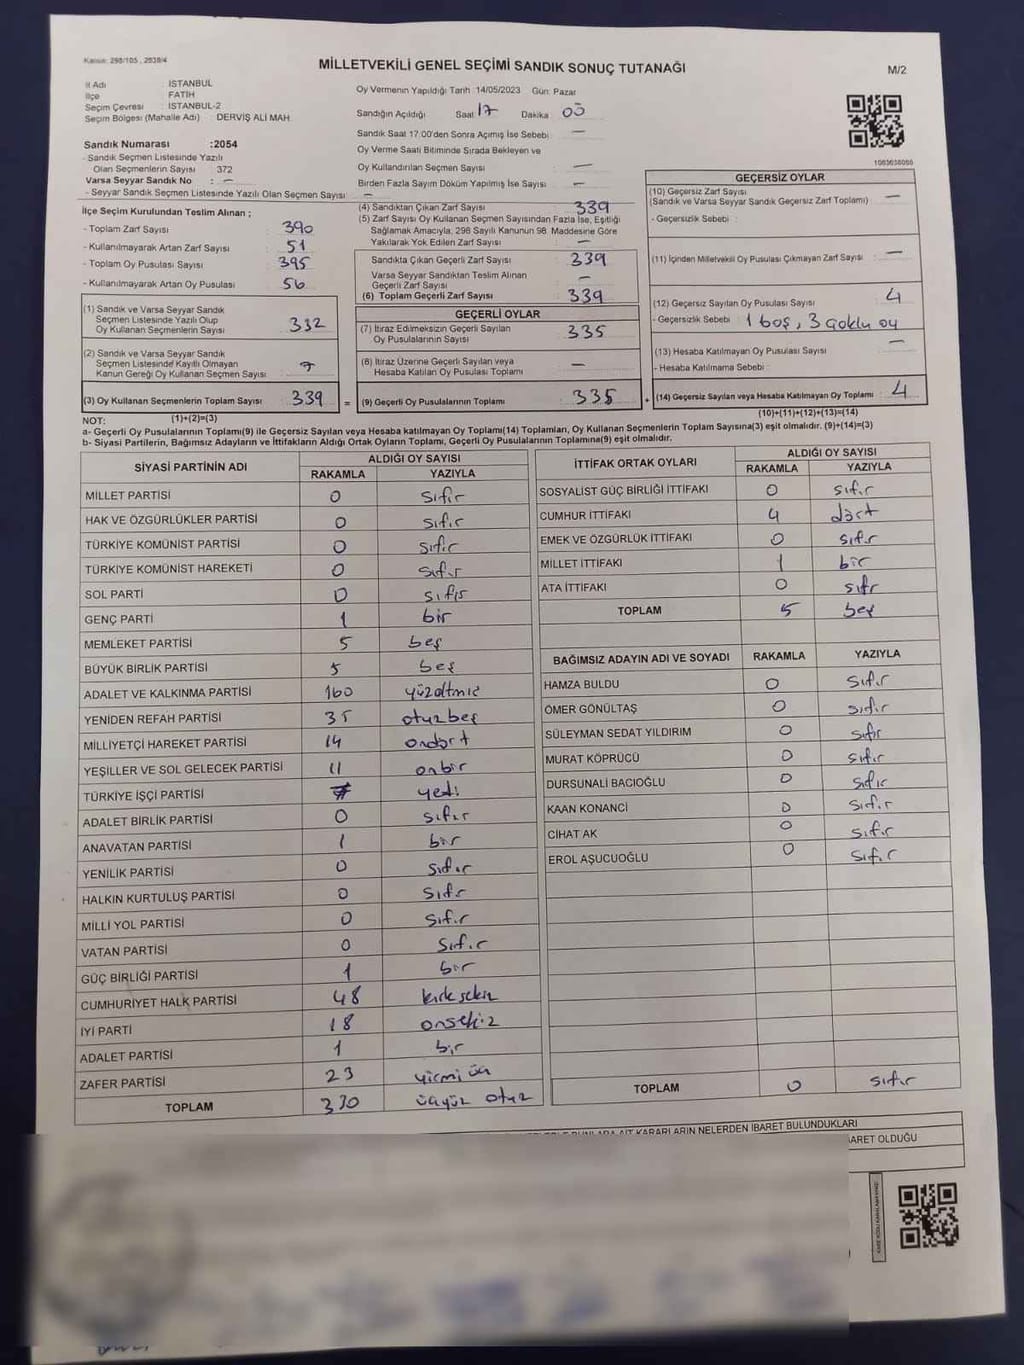 Kanun: 298/105 , 2839/4
MİLLETVEKİLİ GENEL SEÇİMİ SANDIK SONUÇ TUTANAĞI
M/2
İl Adı : İSTANBUL
İlçe : FATİH
Seçim Çevresi : İSTANBUL-2
Seçim Bölgesi (Mahalle Adı) DERVİŞ ALİ MAH.
Sandık Numarası :2054
- Sandık Seçmen Listesinde Yazılı
Olan Seçmenlerin Sayısı 372
Varsa Seyyar Sandık No : —
- Seyyar Sandık Seçmen Listesinde Yazılı Olan Seçmen Sayısı —
Oy Vermenin Yapıldığı Tarih :14/05/2023 Gün: Pazar
Sandığın Açıldığı Saat 17 Dakika 05
Sandık Saat 17:00'den Sonra Açılmış İse Sebebi : —
Oy Verme Saati Bitiminde Sırada Bekleyen ve
Oy Kullandırılan Seçmen Sayısı —
Birden Fazla Sayım Döküm Yapılmış İse Sayısı —
İlçe Seçim Kurulundan Teslim Alınan ;
- Toplam Zarf Sayısı : 390
- Kullanılmayarak Artan Zarf Sayısı : 51
- Toplam Oy Pusulası Sayısı : 395
- Kullanılmayarak Artan Oy Pusulası : 56
(1) Sandık ve Varsa Seyyar Sandık
Seçmen Listesinde Yazılı Olup
Oy Kullanan Seçmenlerin Sayısı 332
(2) Sandık ve Varsa Seyyar Sandık
Seçmen Listesinde Kayıtlı Olmayan
Kanun Gereği Oy Kullanan Seçmen Sayısı 7
(3) Oy Kullanan Seçmenlerin Toplam Sayısı 339 =
(4) Sandıktan Çıkan Zarf Sayısı 339
(5) Zarf Sayısı Oy Kullanan Seçmen Sayısından Fazla İse, Eşitliği
Sağlamak Amacıyla, 298 Sayılı Kanunun 98. Maddesine Göre
Yakılarak Yok Edilen Zarf Sayısı —
Sandıkta Çıkan Geçerli Zarf Sayısı 339
Varsa Seyyar Sandıktan Teslim Alınan
Geçerli Zarf Sayısı —
(6) Toplam Geçerli Zarf Sayısı 339
GEÇERLİ OYLAR
(7) İtiraz Edilmeksizin Geçerli Sayılan
Oy Pusulalarının Sayısı 335
(8) İtiraz Üzerine Geçerli Sayılan veya
Hesaba Katılan Oy Pusulası Toplamı —
(9) Geçerli Oy Pusulalarının Toplamı 335 +
GEÇERSİZ OYLAR
(10) Geçersiz Zarf Sayısı
(Sandık ve Varsa Seyyar Sandık Geçersiz Zarf Toplamı) —
- Geçersizlik Sebebi :
(11) İçinden Milletvekili Oy Pusulası Çıkmayan Zarf Sayısı —
(12) Geçersiz Sayılan Oy Pusulası Sayısı 4
- Geçersizlik Sebebi : 1 boş, 3 çoklu oy
(13) Hesaba Katılmayan Oy Pusulası Sayısı —
- Hesaba Katılmama Sebebi :
(14) Geçersiz Sayılan veya Hesaba Katılmayan Oy Toplamı 4
NOT: (1)+(2)=(3) (10)+(11)+(12)+(13)=(14)
a- Geçerli Oy Pusulalarının Toplamı(9) ile Geçersiz Sayılan veya Hesaba katılmayan Oy Toplamı(14) Toplamları, Oy Kullanan Seçmenlerin Toplam Sayısına(3) eşit olmalıdır. (9)+(14)=(3)
b- Siyasi Partilerin, Bağımsız Adayların ve İttifakların Aldığı Ortak Oyların Toplamı, Geçerli Oy Pusulalarının Toplamına(9) eşit olmalıdır.
SİYASİ PARTİNİN ADI ALDIĞI OY SAYISI
RAKAMLA YAZIYLA
MİLLET PARTİSİ 0 sıfır
HAK VE ÖZGÜRLÜKLER PARTİSİ 0 sıfır
TÜRKİYE KOMÜNİST PARTİSİ 0 sıfır
TÜRKİYE KOMÜNİST HAREKETİ 0 sıfır
SOL PARTİ 0 sıfır
GENÇ PARTİ 1 bir
MEMLEKET PARTİSİ 5 beş
BÜYÜK BİRLİK PARTİSİ 5 beş
ADALET VE KALKINMA PARTİSİ 160 yüzaltmış
YENİDEN REFAH PARTİSİ 35 otuzbeş
MİLLİYETÇİ HAREKET PARTİSİ 14 ondört
YEŞİLLER VE SOL GELECEK PARTİSİ 11 onbir
TÜRKİYE İŞÇİ PARTİSİ 7 yedi
ADALET BİRLİK PARTİSİ 0 sıfır
ANAVATAN PARTİSİ 1 bir
YENİLİK PARTİSİ 0 sıfır
HALKIN KURTULUŞ PARTİSİ 0 sıfır
MİLLİ YOL PARTİSİ 0 sıfır
VATAN PARTİSİ 0 sıfır
GÜÇ BİRLİĞİ PARTİSİ 1 bir
CUMHURİYET HALK PARTİSİ 48 kırksekiz
İYİ PARTİ 18 onsekiz
ADALET PARTİSİ 1 bir
ZAFER PARTİSİ 23 yirmi üç
TOPLAM 330 üçyüz otuz
İTTİFAK ORTAK OYLARI ALDIĞI OY SAYISI
RAKAMLA YAZIYLA
SOSYALİST GÜÇ BİRLİĞİ İTTİFAKI 0 sıfır
CUMHUR İTTİFAKI 4 dört
EMEK VE ÖZGÜRLÜK İTTİFAKI 0 sıfır
MİLLET İTTİFAKI 1 bir
ATA İTTİFAKI 0 sıfır
TOPLAM 5 beş
BAĞIMSIZ ADAYIN ADI VE SOYADI RAKAMLA YAZIYLA
HAMZA BULDU 0 sıfır
ÖMER GÖNÜLTAŞ 0 sıfır
SÜLEYMAN SEDAT YILDIRIM 0 sıfır
MURAT KÖPRÜCÜ 0 sıfır
DURSUNALİ BACIOĞLU 0 sıfır
KAAN KONANCİ 0 sıfır
CİHAT AK 0 sıfır
EROL AŞUCUOĞLU 0 sıfır
TOPLAM 0 sıfır
KARARLARIN NELERDEN İBARET BULUNDUKLARI
OLDUĞU